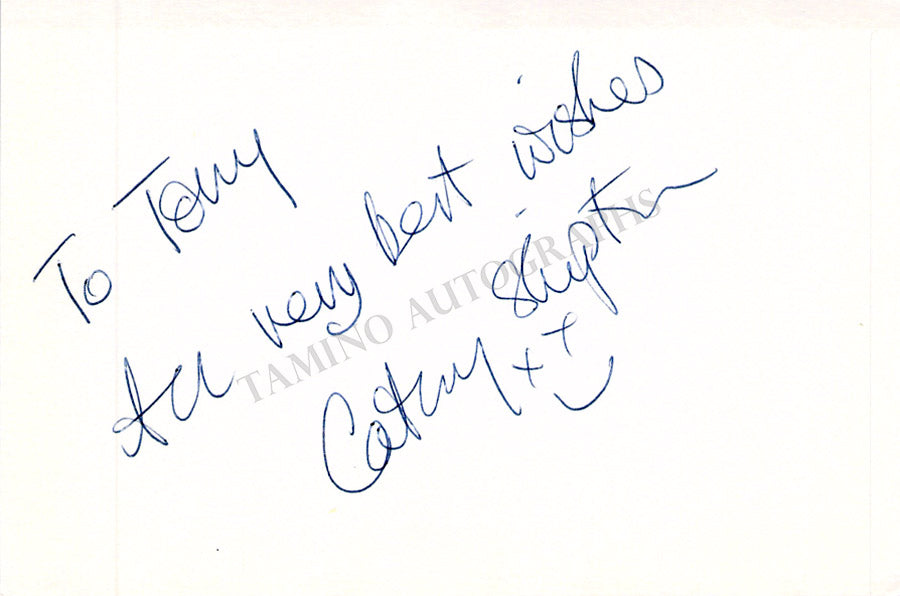 To Tony
All very best wishes
Cathy Shipton
xx
TAMINO AUTOGRAPHS